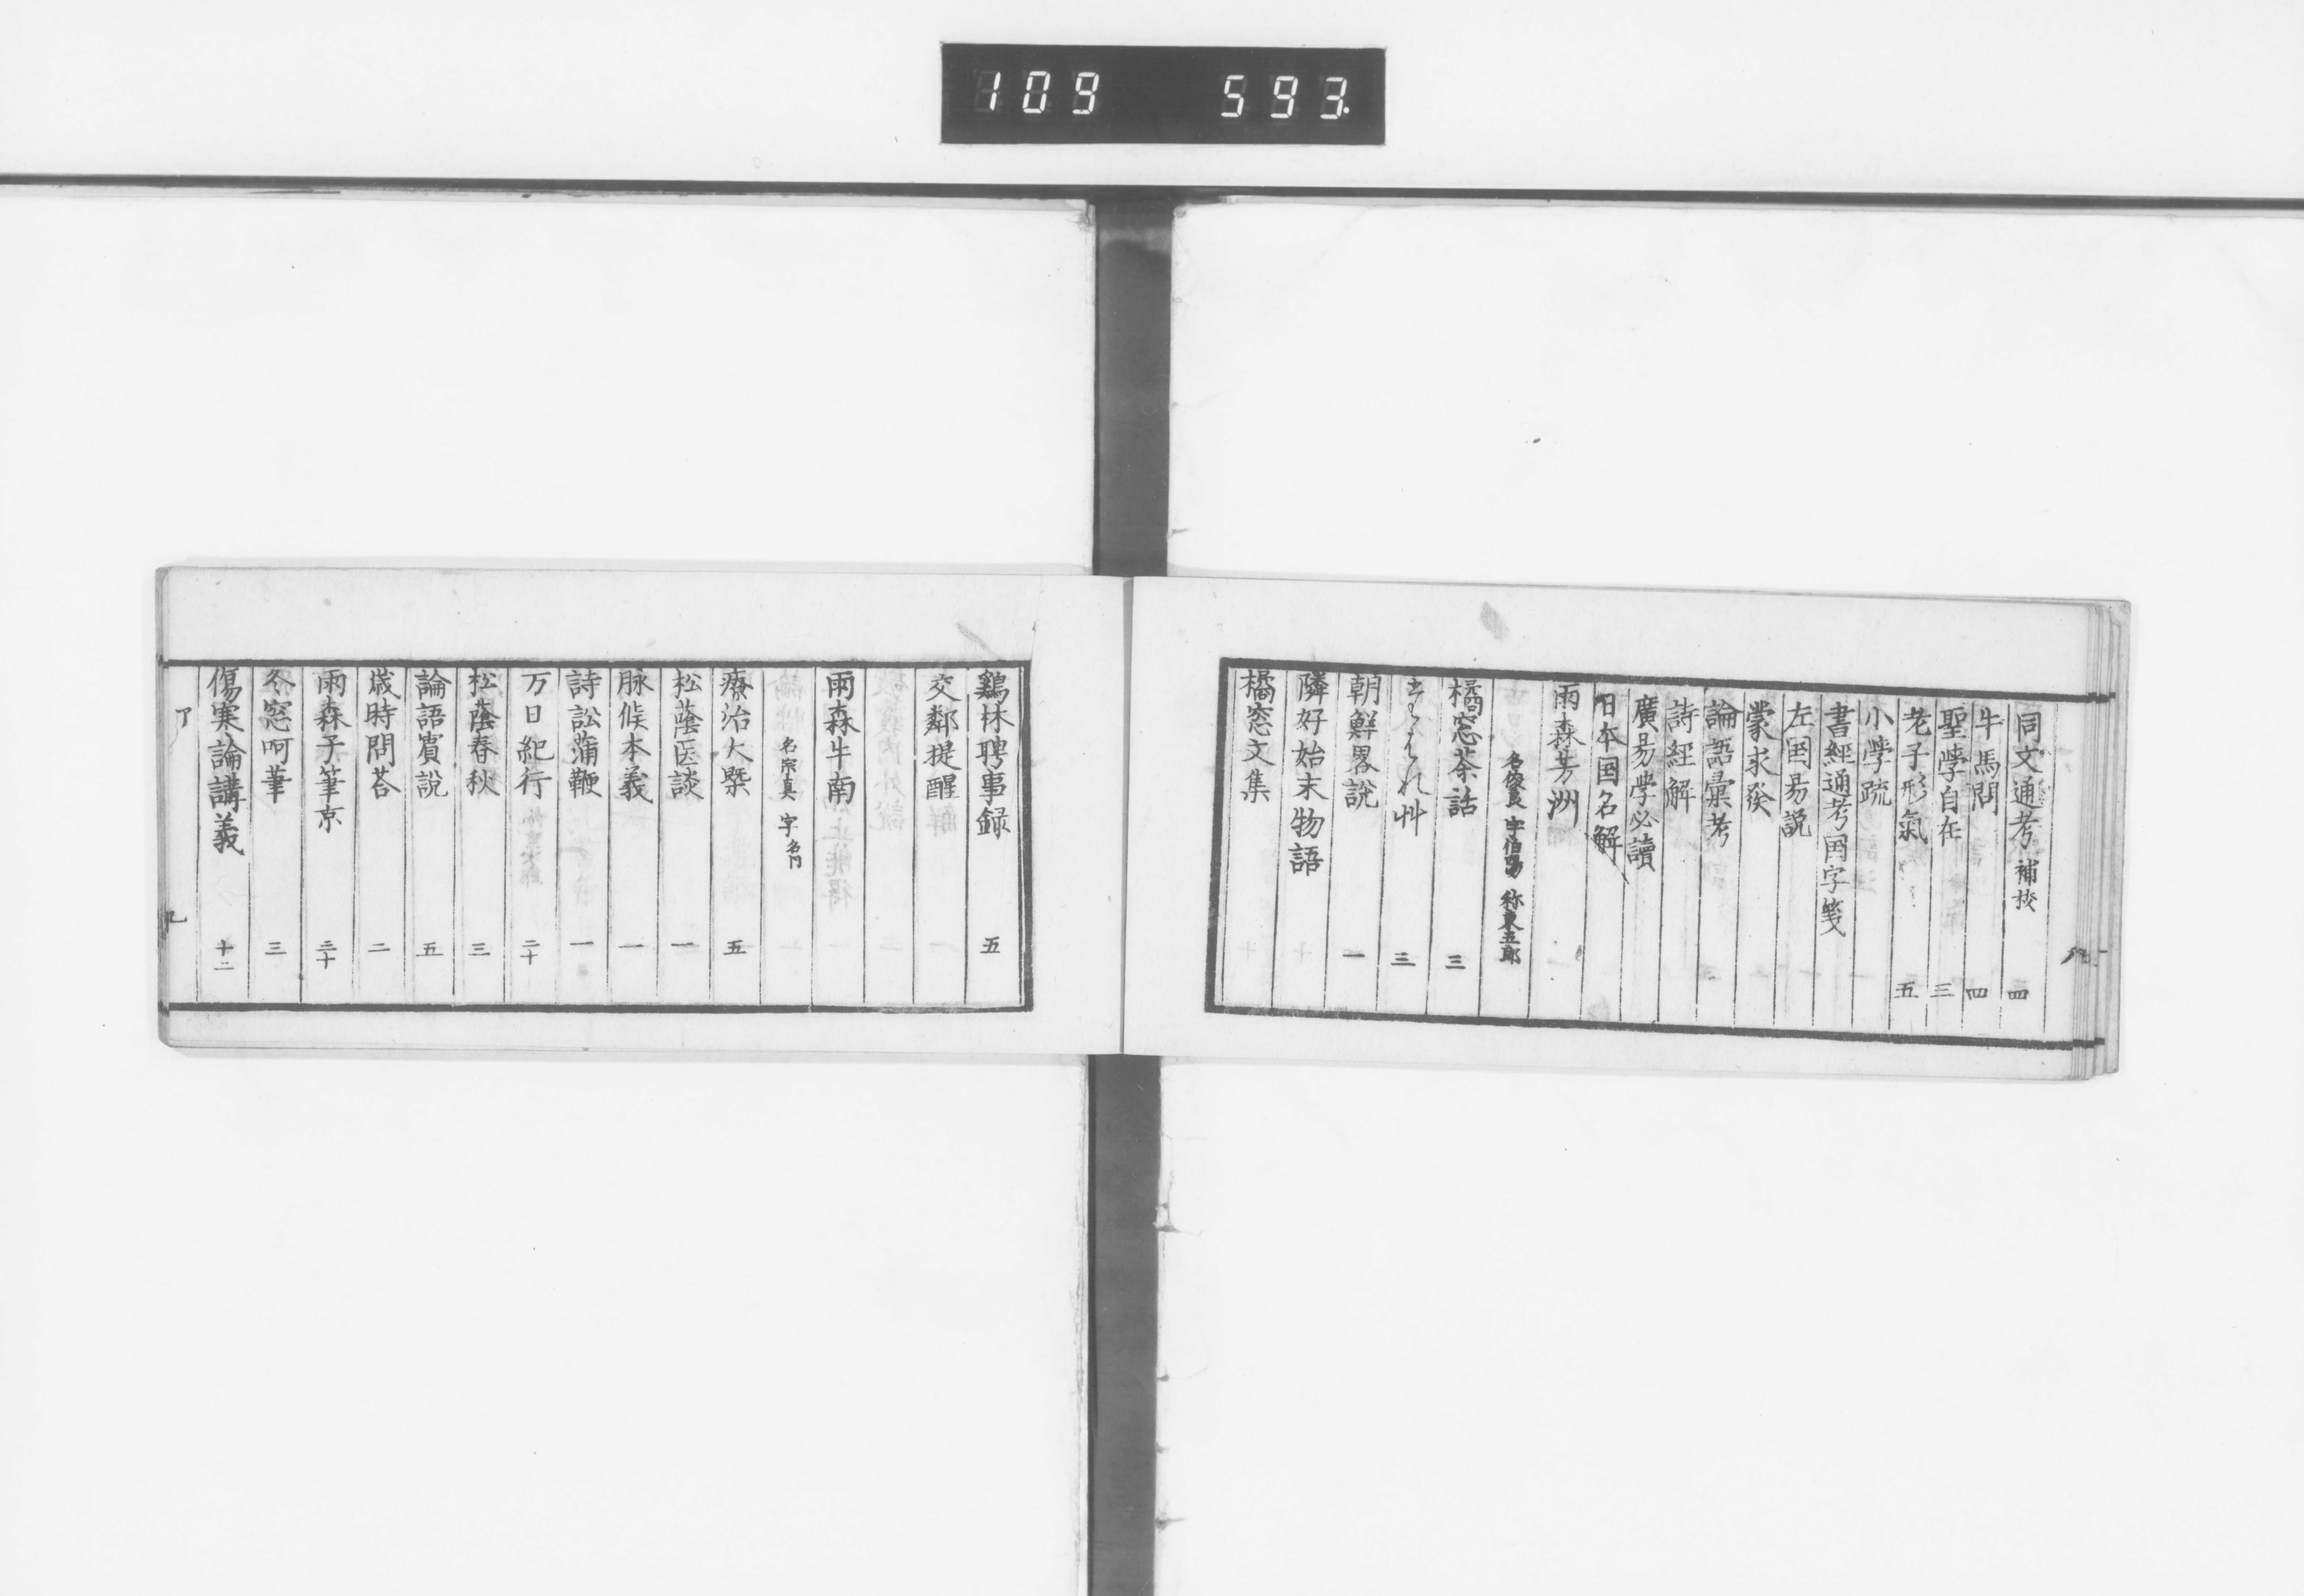 109 593.
同文通考 補挍 四
牛馬問 四
聖學自在 三
老子形氣 五
小學疏
書經通考国字箋
左国易説
蒙求癸
論語彙考
詩經解
廣易学必讀
日本国名解
雨森芳洲
名俊良 字伯陽 称東五郎
橘窓茶話 三
たはれ艸 三
朝鮮畧說 一
隣好始末物語
橘窓文集
鷄林聘事録 五
交鄰提醒
雨森牛南
名宗真 字名門
療治大槩 五
松蔭医談 一
脉候本義 一
詩訟蒲鞭 一
万日紀行 二十
松蔭春秋 三
論語賓說 五
歳時問荅 二
雨森子筆京 三十
冬窓呵筆 三
傷寒論講義 十二